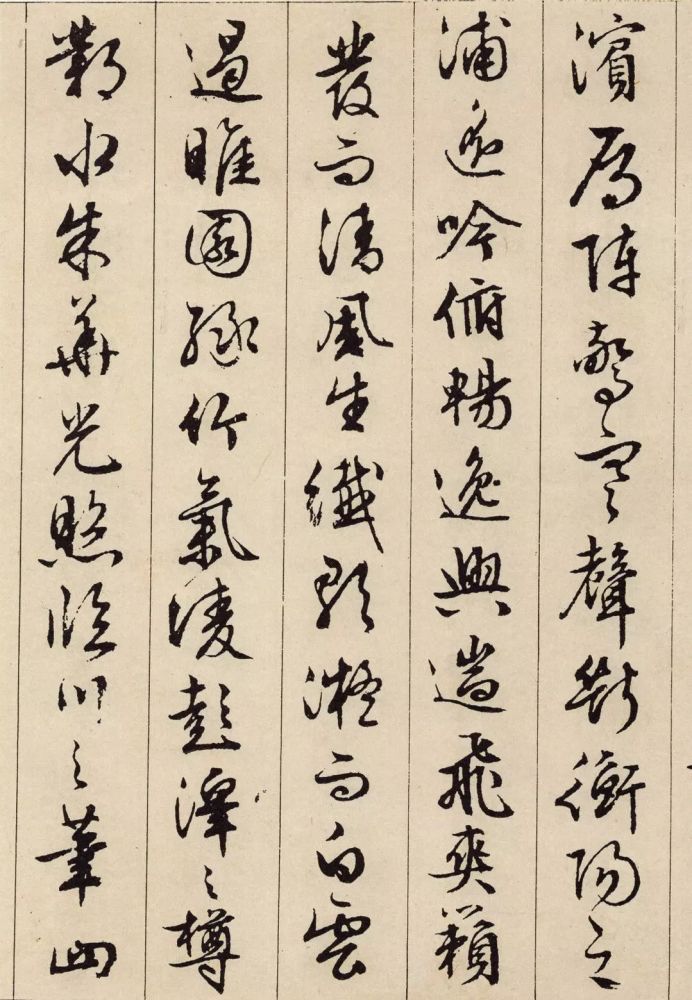 濱鴈陣驚寒聲斷衡陽之
浦遥吟俯暢逸興遄飛爽籟
發而清風生纖歌凝而白雲
遏睢園緑竹氣淩彭澤之樽
鄴水朱華光照臨川之筆四